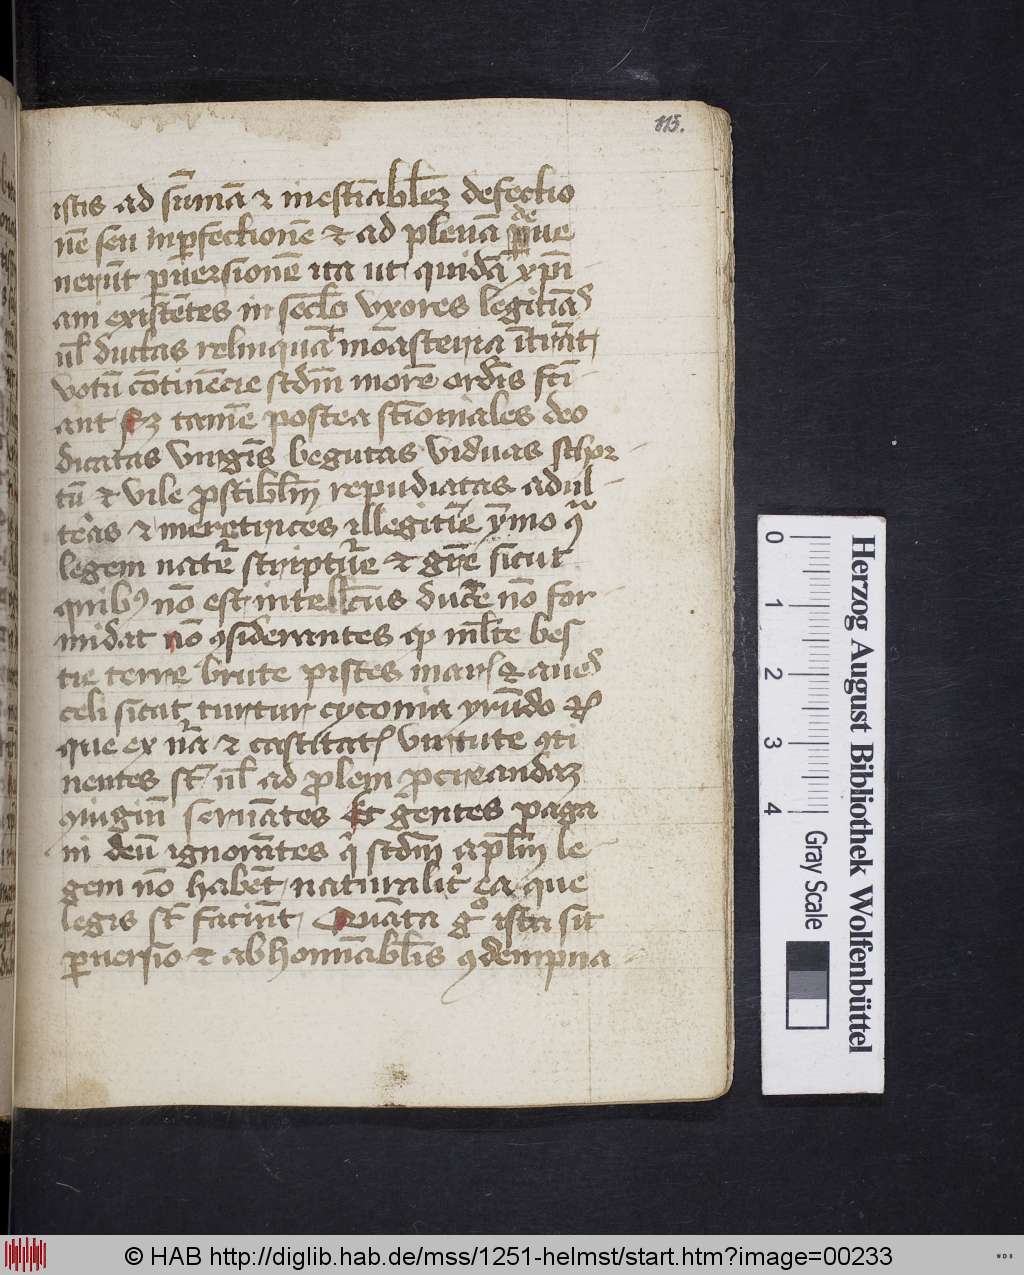 113.
istis ad sūmā et inestīabl'ez defectio
nē seu inperfectionē et ad plenā deue
nerūt peruersionē ita ut quidā xp̄i
ani existētes in seclo vxores legitīas
ul' ductas relinquāt moāsteria ītrāt
votū cōtinēcie scdm morē ordīs fci
ant sz tamē postea scīoniales deo
dicatas virgīes begutas viduas
tū et vile prostibl'm repudiatas adul
teras et meretrices illegitīe ymo
legem nature scripture et grē sicut
quibꝯ nō est intellcūs ducē nō for
midat nō ꝯsiderantes ꝙ ml'te bes
tie terre brute pisces maris et aues
celi sicut turtur cyconia yrūdo etc
que ex nā et castitatis virtute ꝯti
nentes st ul' ad prolem procreandaz
ꝯiugiū seruātes Et gentes paga
ni deū ignorātes qi scdm aplm le
gem nō habēt naturalir ea que
legis st faciūt Quāta go ista sit
peruersio et abhominabl'is ꝯdempna
0 1 2 3 4
Gray Scale
Herzog August Bibliothek Wolfenbüttel
© HAB http://diglib.hab.de/mss/1251-helmst/start.htm?image=00233